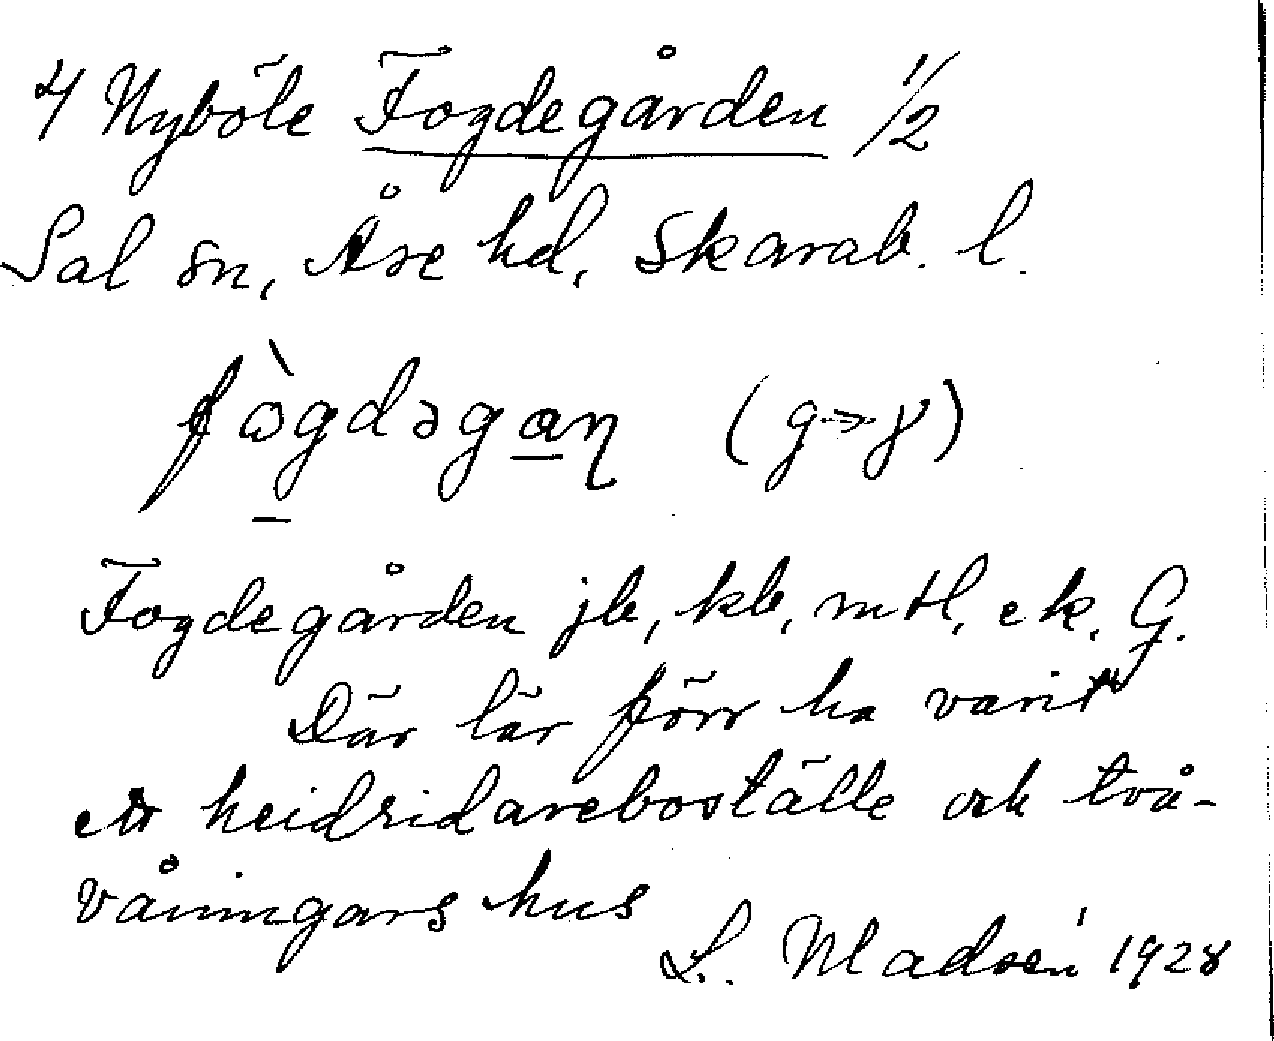 4 Nyböle Fogdegården 1/2
Sal sn, Åse hd, Skarab. l.
fὼgdəgan̨ (g->ɣ)
Fogdegården jb, kb, mtl, ek. G.
Där lär förr ha varit
ett heidridareboställe och två-
våningars hus
L. Madsén 1928